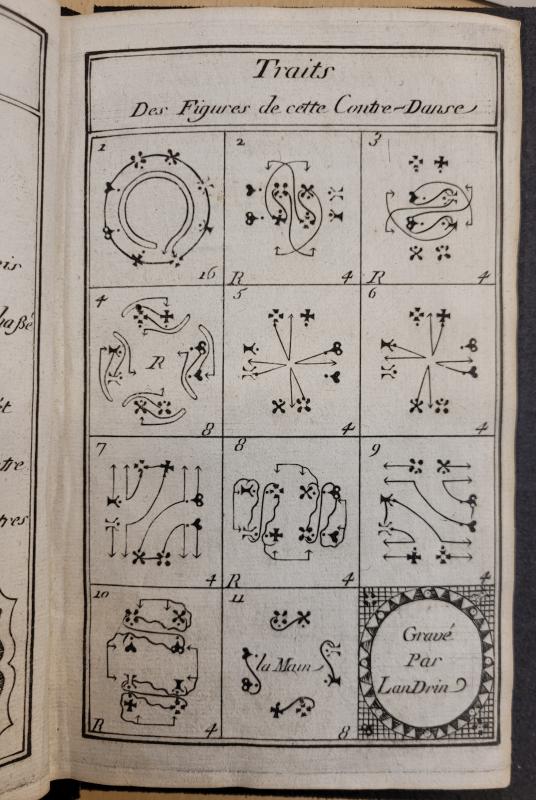 Traits
Des Figures de cette Contre-Danse
1
16
2
R 4
3
R 4
4
R
8
5
4
6
4
7
4
8
R 4
9
4
10
R 4
11
la Main
8
Gravé
Par
LanDrin
tre
tres